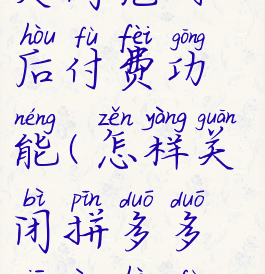 hòu fù fèi gōng
后付费功
néng zěn yàng guān
能(怎样关
bì pīn duō duō
闭拼多多